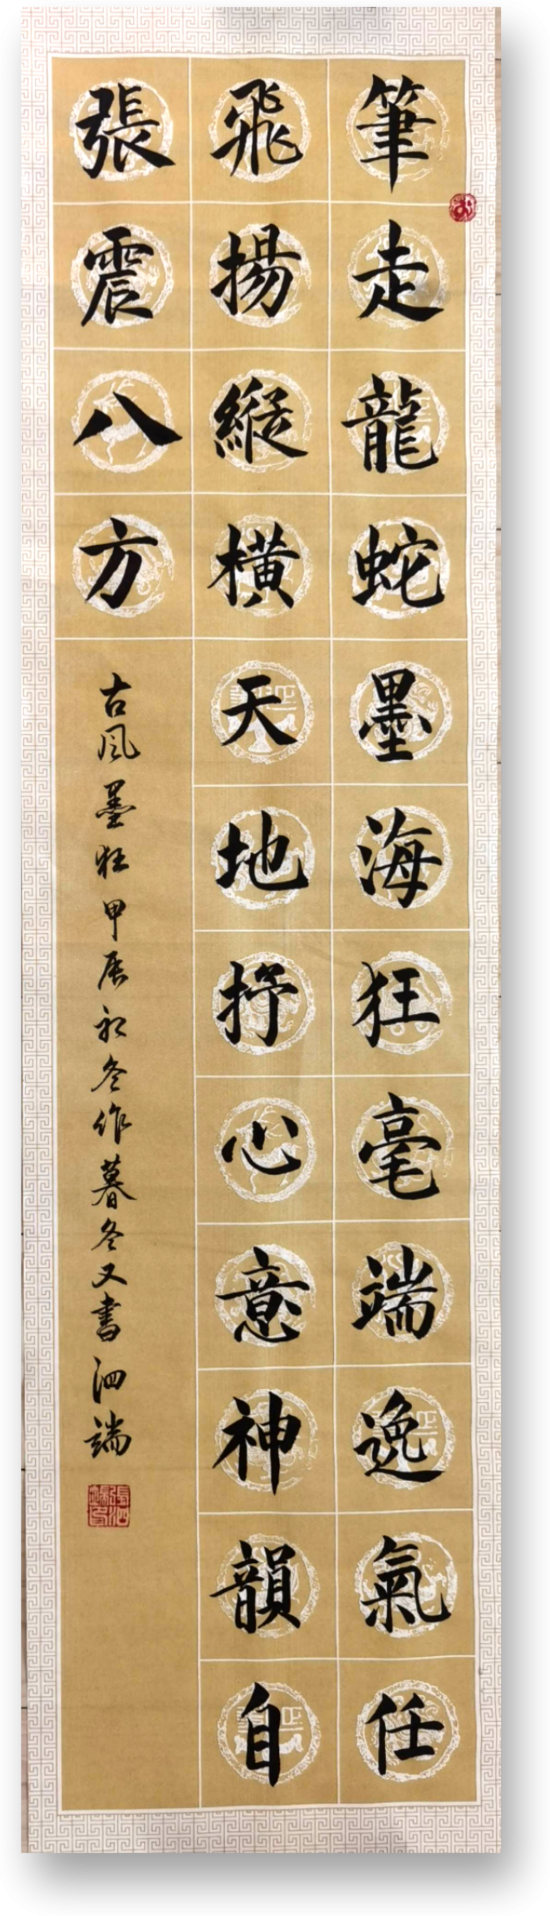 筆走龍蛇墨海狂毫端逸氣任
飛揚縱橫天地抒心意神韻自
張震八方
古风墨狂甲辰初冬作暮冬又書泗端